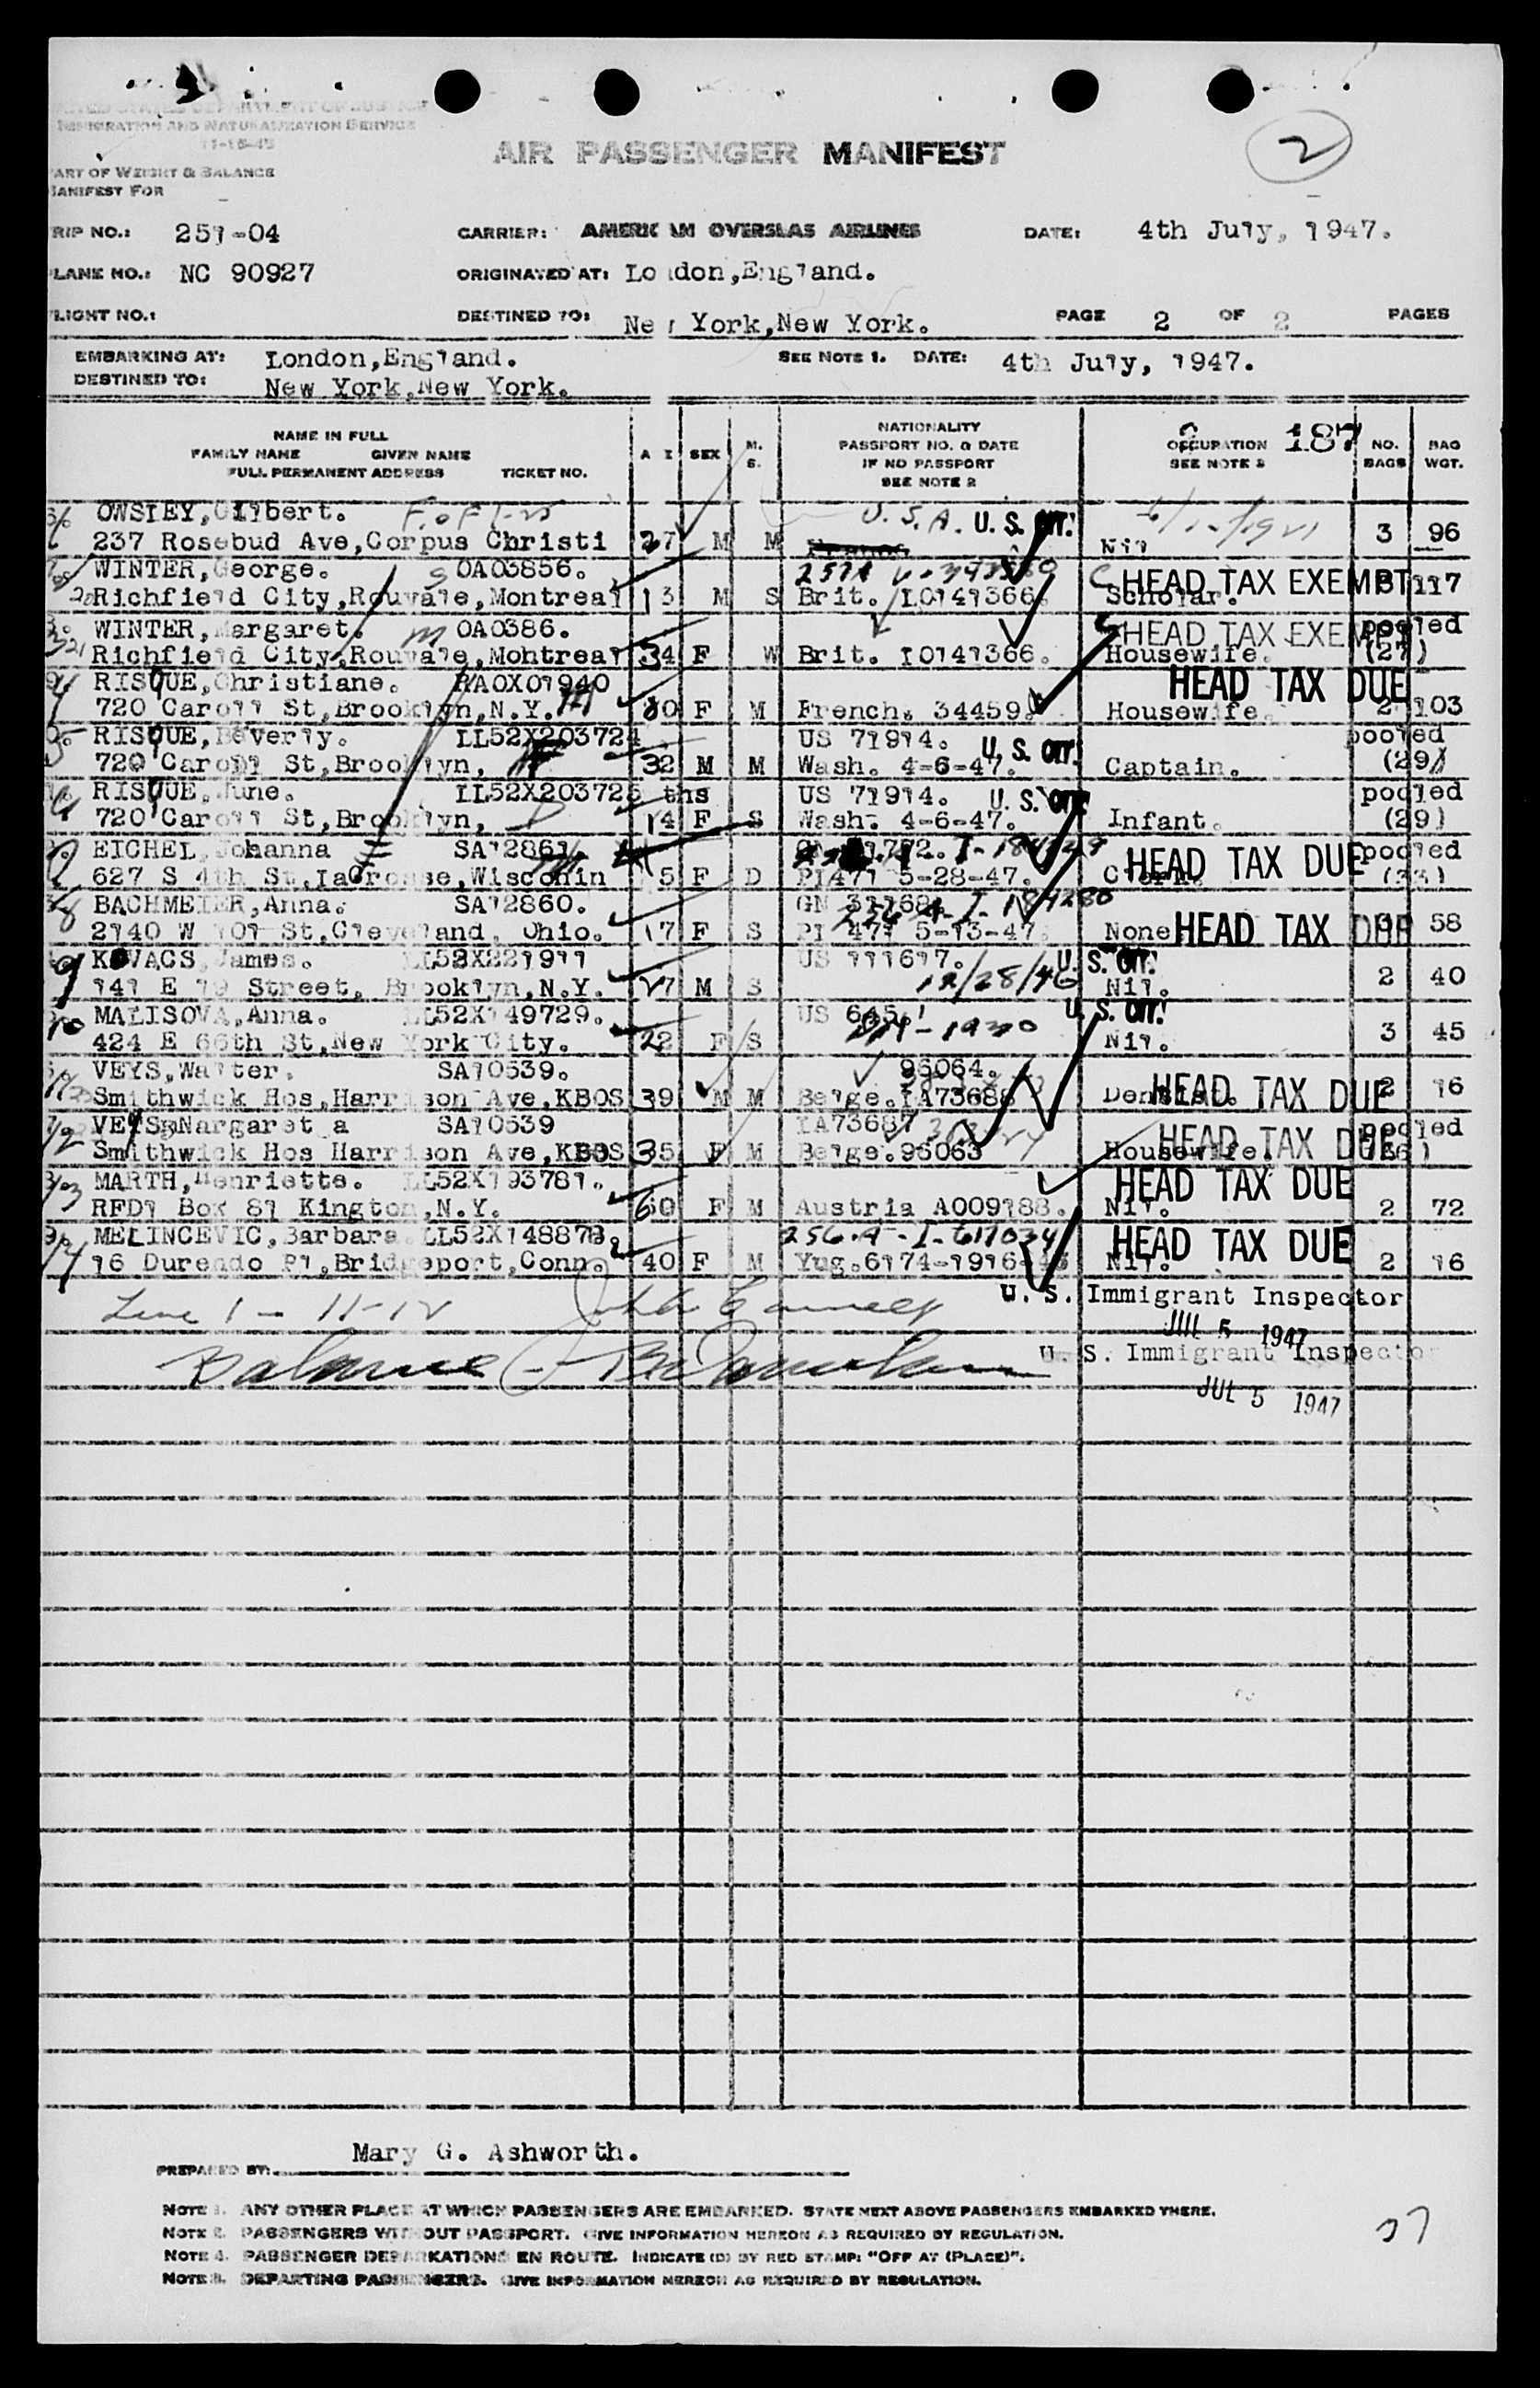 UNITED STATES DEPARTMENT OF JUSTICE
IMMIGRATION AND NATURALIZATION SERVICE
11-15-45
AIR PASSENGER MANIFEST
2
ART OF WEIGHT & BALANCE
MANIFEST FOR
RIP NO.: 251-04 CARRIER: AMERICAN OVERSEAS AIRLINES DATE: 4th July, 1947.
LANE NO.: NC 90927 ORIGINATED AT: London,England.
LIGHT NO.: DESTINED TO: New York,New York. PAGE 2 OF 2 PAGES
EMBARKING AT: London,England. SEE NOTE 1. DATE: 4th July, 1947.
DESTINED TO: New York,New York.
NAME IN FULL
FAMILY NAME GIVEN NAME
FULL PERMANENT ADDRESS TICKET NO.
A E SEX M. S.
NATIONALITY
PASSPORT NO. & DATE
IF NO PASSPORT
SEE NOTE 2
OCCUPATION 187
SEE NOTE 3
NO. BAGS
BAG WGT.
OWSLEY,Gilbert. U.S.A. U. S. CIT.
237 Rosebud Ave,Corpus Christi 27 M M Nil 3 96
WINTER,George. S OA03856. HEAD TAX EXEMPT
Richfield City,Rouvale,Montreal 13 M S Brit. IO141366. Scholar. 117
WINTER,Margaret. m OA0386. HEAD TAX EXEMPT pooled
Richfield City,Rouvale,Montreal 34 F W Brit. IO141366. Housewife. (27)
RISQUE,Christiane. RAOX01940 HEAD TAX DUE
720 Caroll St,Brooklyn,N.Y. M 30 F M French. 34459. Housewife. 2 103
5 RISQUE,Beverly. LL52X203724 US 71914. U. S. CIT. pooled
720 Caroll St,Brooklyn, 32 M M Wash. 4-6-47. Captain. (29)
6 RISQUE,June. LL52X203725 ths US 71914. U. S. CIT. pooled
720 Caroll St,Brooklyn, 14 F S Wash. 4-6-47. Infant. (29)
7 EICHEL,Johanna SA12861. HEAD TAX DUE pooled
627 S 4th St,LaCrosse,Wisconin 5 F D PI471 5-28-47. (33)
8 BACHMEIER,Anna. SA12860. GN 31168
2140 W 101 St,Cleveland, Ohio. 17 F S PI 471 5-13-47. None HEAD TAX DUE 58
9 KOVACS,James. LL52X221911 US 111617. U. S. CIT.
141 E 19 Street, Brooklyn,N.Y. 27 M S 12/28/46 Nil. 2 40
10 MALISOVA,Anna. LL52X149729. US 645. U. S. CIT.
424 E 66th St,New York City. 22 F S Nil. 3 45
VEYS,Walter. SA10539. 96064.
Smithwick Hos,Harrison Ave,KBOS 39 M M Belge.IA73688 Dentist. HEAD TAX DUE 2 16
12 VEYS,Margareta SA10539 IA73687 pooled
Smithwick Hos Harrison Ave,KBOS 35 F M Belge.96063 Housewife. HEAD TAX DUE
MARTH,Henriette. LL52X193781. HEAD TAX DUE
RFD1 Box 81 Kington,N.Y. 60 F M Austria A009188. Nil. 2 72
14 MELINCEVIC,Barbara LL52X148878. HEAD TAX DUE
16 Durendo Pl,Bridgeport,Conn. 40 F M Yug.6174-1916 Nil. 2 16
Line 1 - 11-12 U. S. Immigrant Inspector
JUL 5 1947
Balance U. S. Immigrant Inspector
JUL 5 1947
PREPARED BY: Mary G. Ashworth.
NOTE 1. ANY OTHER PLACE AT WHICH PASSENGERS ARE EMBARKED. STATE NEXT ABOVE PASSENGERS EMBARKED THERE.
NOTE 2. PASSENGERS WITHOUT PASSPORT. GIVE INFORMATION HEREON AS REQUIRED BY REGULATION.
NOTE 4. PASSENGER DEBARKATIONS EN ROUTE. INDICATE (D) BY RED STAMP: "OFF AT (PLACE)".
NOTE 3. DEPARTING PASSENGERS. GIVE INFORMATION HEREON AS REQUIRED BY REGULATION.